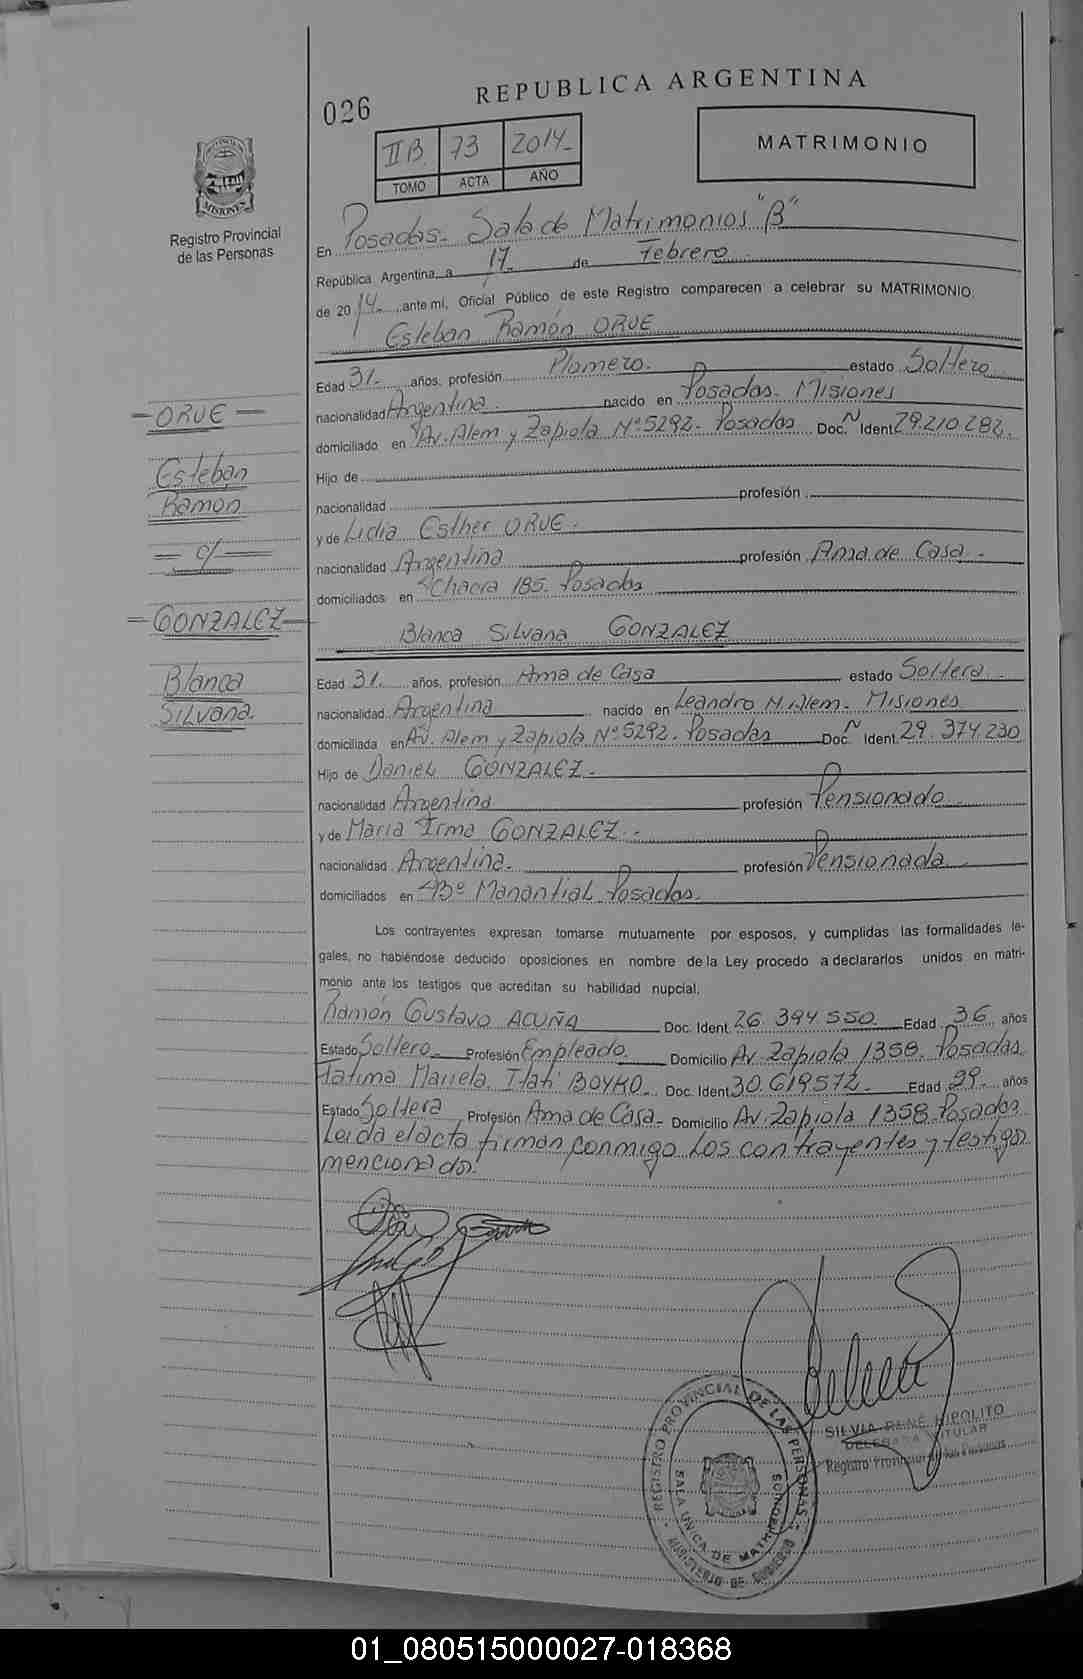 REPUBLICA ARGENTINA
026
II B. 73 2014-
TOMO ACTA AÑO
MATRIMONIO
PROVINCIA
MISIONES
Registro Provincial
de las Personas
En Posadas- Sala de Matrimonios "B"
República Argentina, a 17 de Febrero
de 2014. ante mí, Oficial Público de este Registro comparecen a celebrar su MATRIMONIO.
Esteban Ramón ORUE
Edad 31. años, profesión Plomero. estado Soltero
nacionalidad Argentina. nacido en Posadas. Misiones
domiciliado en Av. Alem y Zapiola Nº 5292- Posadas Doc. Ident. 29.210.282.
Hijo de
nacionalidad profesión
y de Lidia Esther ORUE.
nacionalidad Argentina profesión Ama de Casa.-
domiciliados en Chacra 185. Posadas
Blanca Silvana GONZALEZ
Edad 31. años, profesión Ama de Casa estado Soltera.
nacionalidad Argentina nacido en Leandro N. Alem- Misiones
domiciliada en Av. Alem y Zapiola Nº 5292. Posadas Doc. Ident. 29.374.230
Hijo de Daniel GONZALEZ.-
nacionalidad Argentina profesión Pensionado
y de Maria Irma GONZALEZ.-
nacionalidad Argentina.- profesión Pensionada
domiciliados en Bº Manantial Posadas.
Los contrayentes expresan tomarse mutuamente por esposos, y cumplidas las formalidades le-
gales, no habiéndose deducido oposiciones en nombre de la Ley procedo a declararlos unidos en matri-
monio ante los testigos que acreditan su habilidad nupcial.
Ramón Gustavo ACUÑA Doc. Ident. 26.394.550. Edad 36 años
Estado Soltero. Profesión Empleado. Domicilio Av. Zapiola 1358. Posadas
Fatima Mariela Itati BOYKO. Doc. Ident. 30.619572.- Edad 29 años
Estado Soltera Profesión Ama de Casa- Domicilio Av. Zapiola 1358-Posadas
Leida el acta firman conmigo los contrayentes y testigos
mencionados.
- ORUE -
Esteban
Ramon
- c/ -
- GONZALEZ -
Blanca
Silvana.
SILVIA RENÉ HIPOLITO
DELEGADA TITULAR
Registro Provincial de las Personas
REGISTRO PROVINCIAL DE LAS PERSONAS
SALA UNICA DE MATRIMONIOS
MINISTERIO DE GOBIERNO
01_080515000027-018368